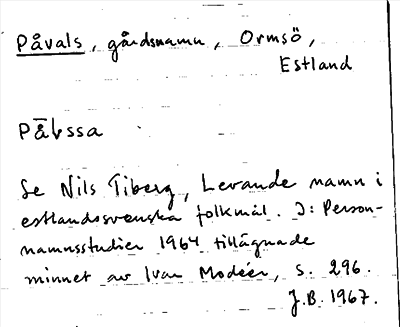 Påvals, gårdsnamn, Ormsö,
Estland
Se Nils Tiberg, Levande namn i
estlandssvenska folkmål. I: Person-
namnsstudier 1964 tillägnade
minnet av Ivar Modéer, s. 296.
J.B. 1967.